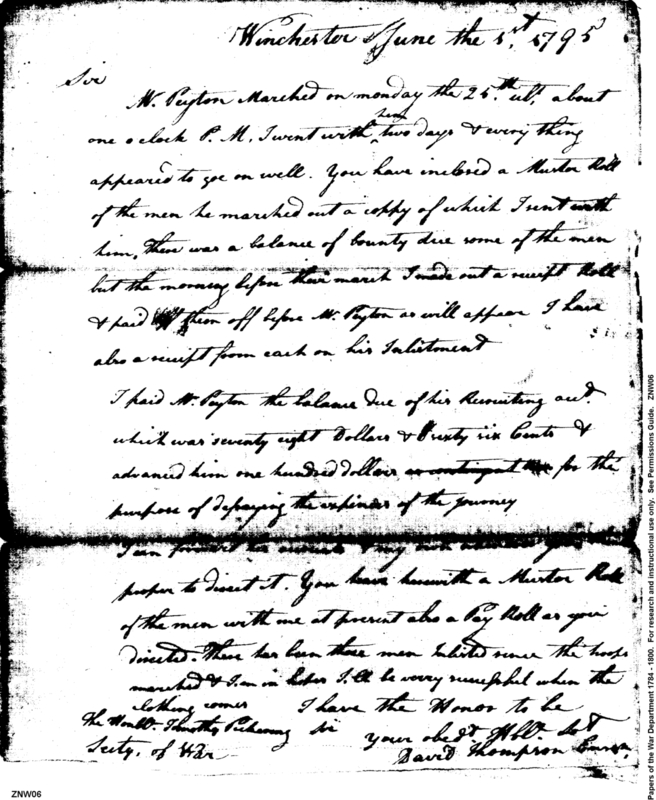 Winchester June the 1st. 1795
Sir
Mr. Peyton Marched on monday the 25th. ulto. about
one o clock P. M. I went with him two days & every thing
appeared to goe on well. You have inclosed a Muster Roll
of the men he marched out a coppy of which I sent with
him, there was a balance of bounty due some of the men
but the morning before their march I made out a receipt Roll
& paid them off before Mr. Peyton as will appear I have
also a receipt from each on his Inlistment
I paid Mr. Peyton the balance due of his Recruiting acct.
which was seventy eight Dollars & sixty six Cents &
advanced him one hundred dollars for the
purpose of defraying the expences of the journey
I can forward his accounts & my own whenever you
proper to direct it. You have herewith a Muster Roll
of the men with me at present also a Pay Roll as you
directed. There has been three men Inlisted since the troops
marched & I am in hopes I.ll be very successful when the
clothing comes I have the Honor to be
The Honble. Timothy Pickering Sir
Secty. of War your obedt. Hble. Sevt
David Thompson Ensign
Papers of the War Department 1784 - 1800. For research and instructional use only. See Permissions Guide. ZNW06
ZNW06